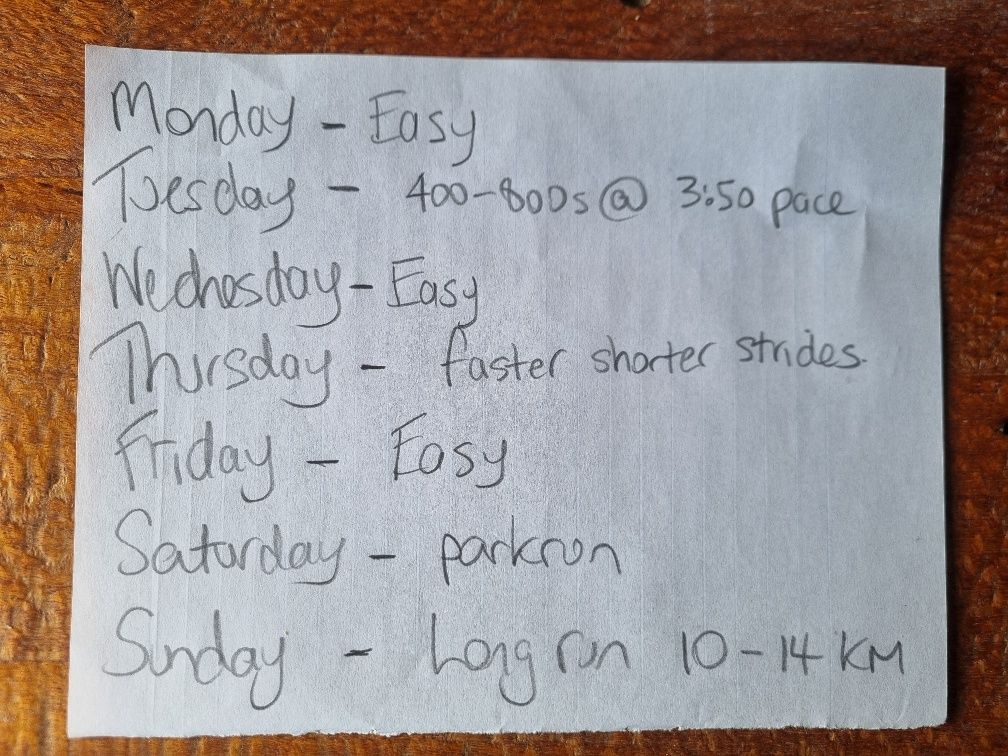 Monday - Easy
Tuesday - 400-800s @ 3:50 pace
Wednesday - Easy
Thursday - faster shorter strides.
Friday - Easy
Saturday - parkrun
Sunday - Long run 10-14 KM